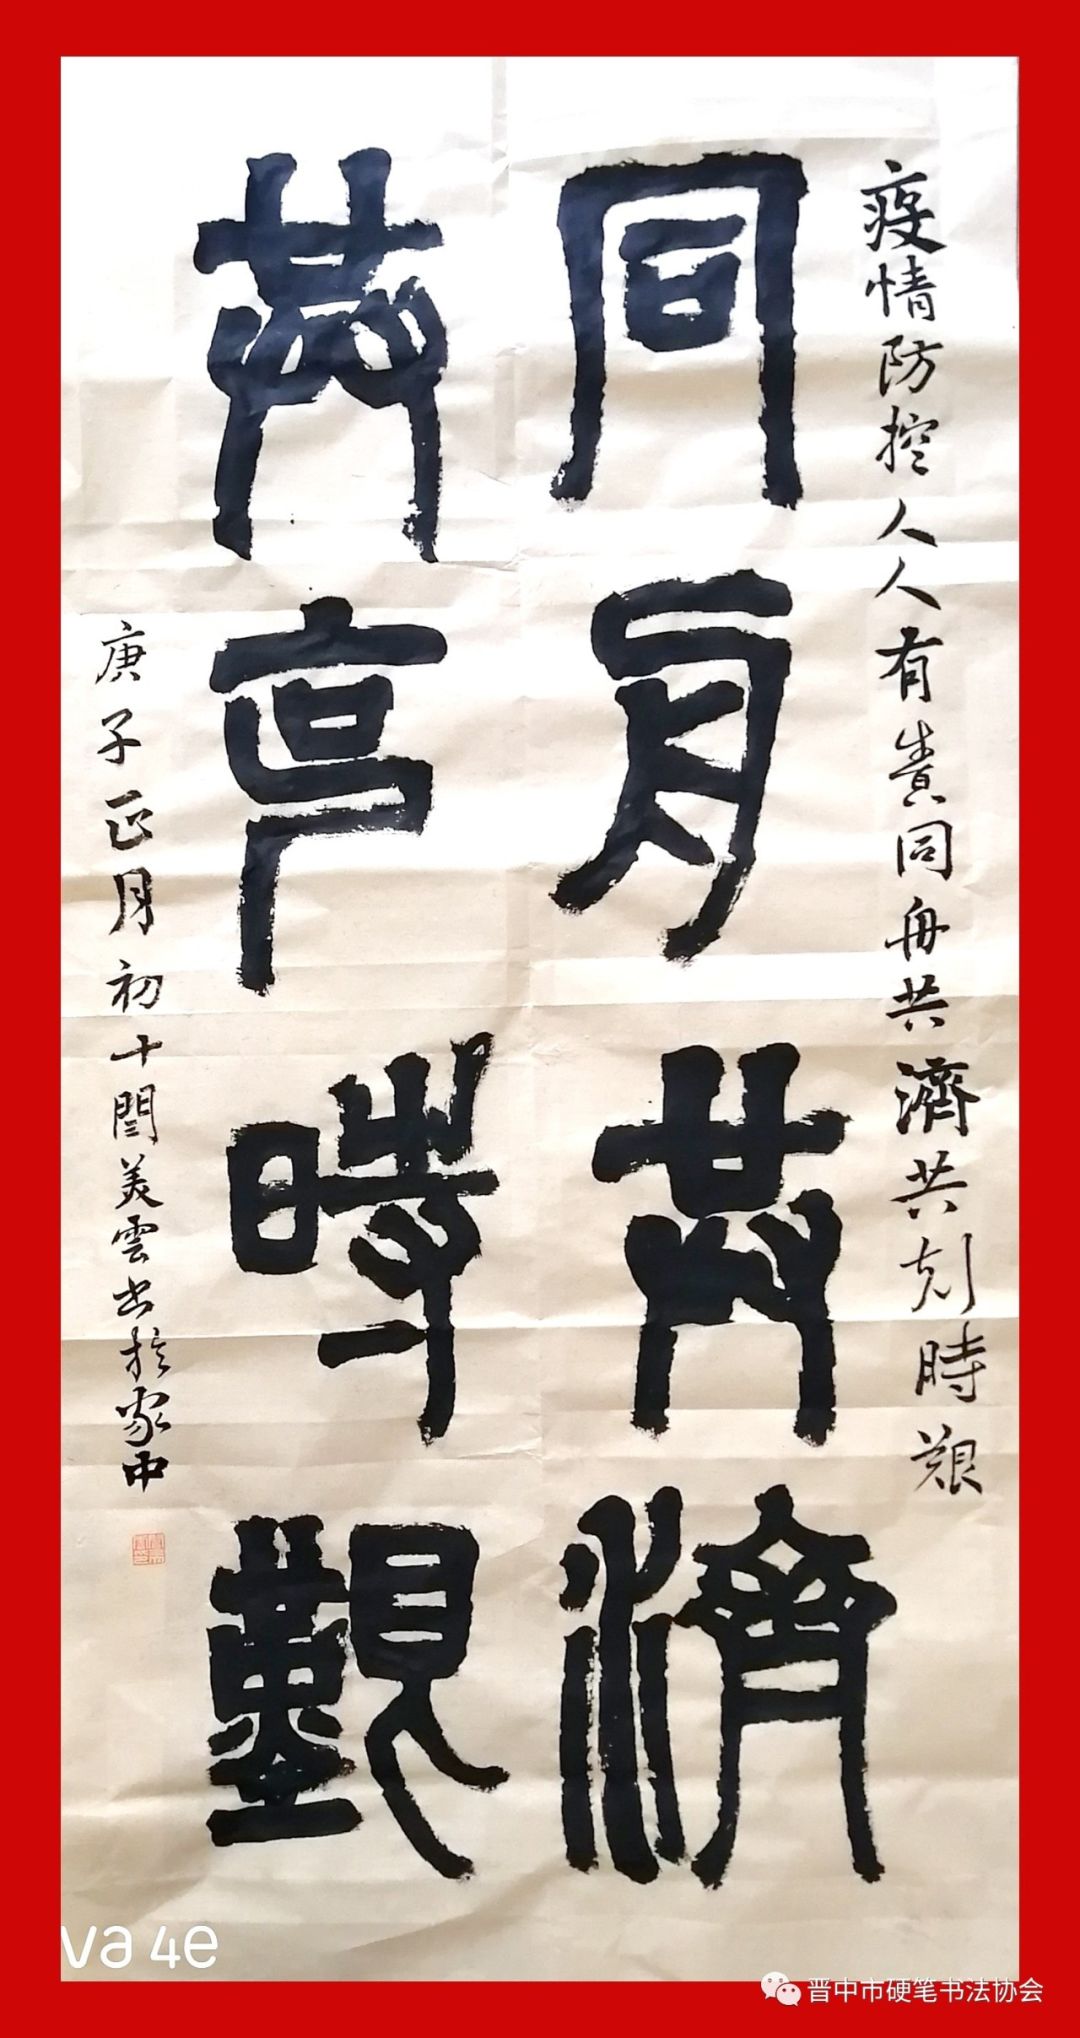 疫情防控人人有责同舟共濟共刻時艱
同舟共濟
共克時艱
庚子正月初十閆美雲书於家中
va 4e
晋中市硬笔书法协会